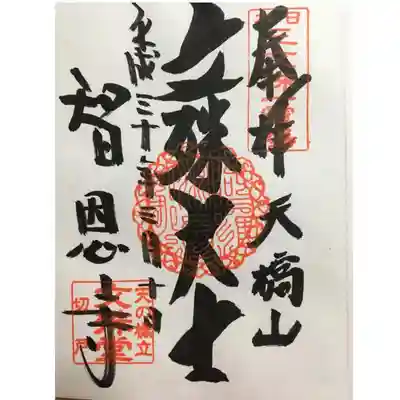 奉拝
天橋山
文殊大士
平成三十一年三月十日
智恩寺
天の橋立
文殊堂
切戸